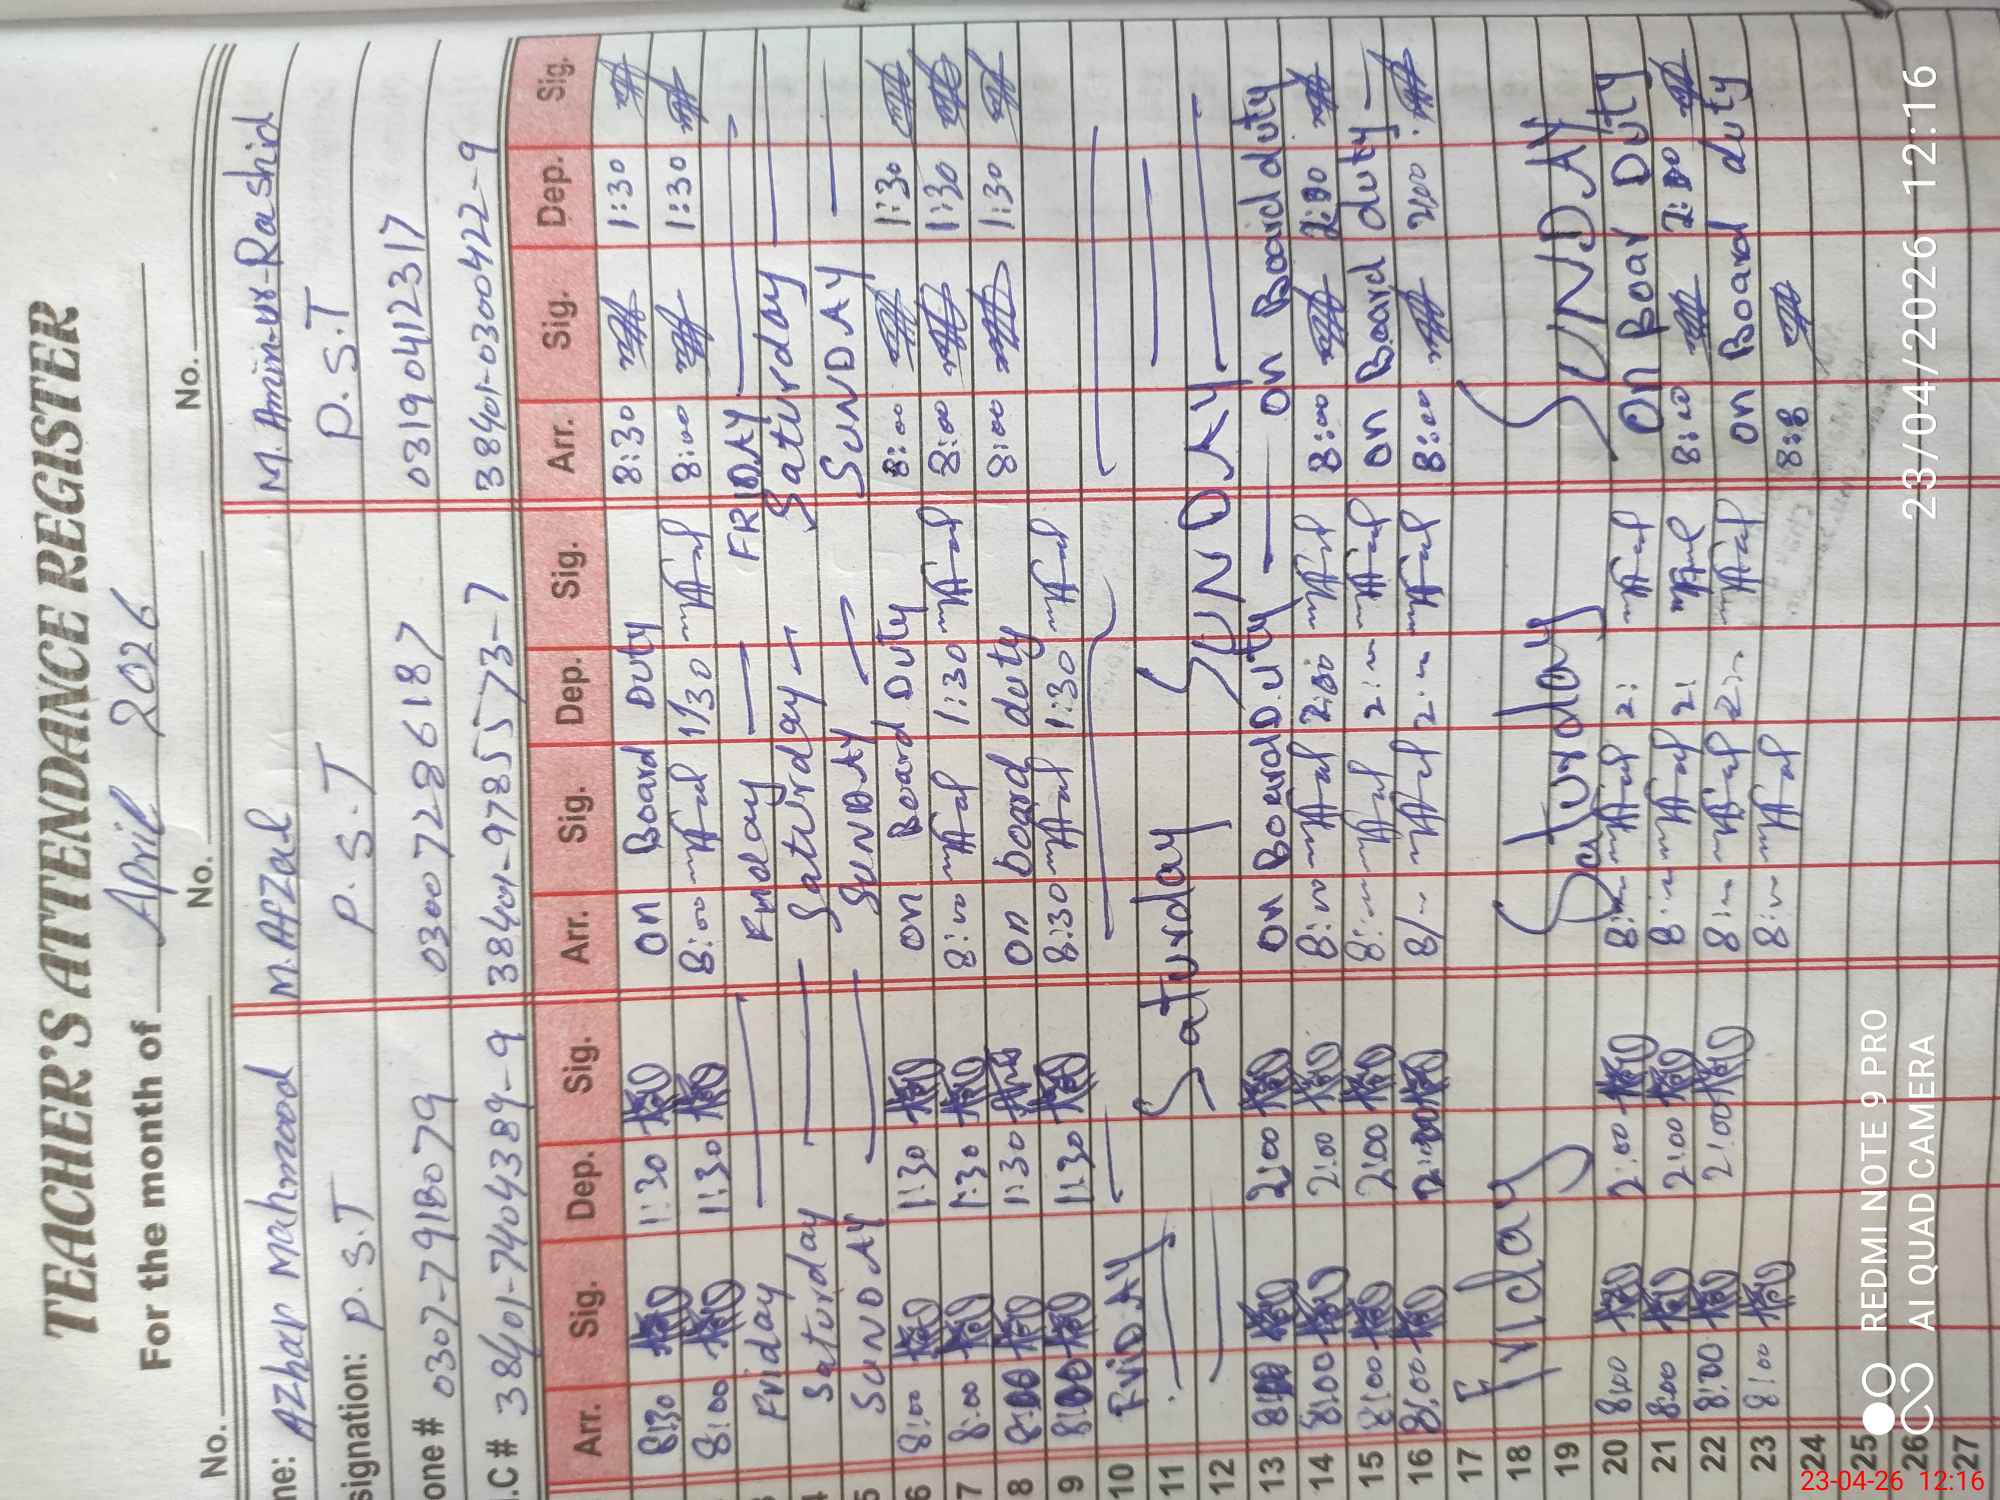 TEACHER'S ATTENDANCE REGISTER
For the month of April 2026
No. No. No.
me: Azhar Mahmood M. Afzal M. Amin-ur-Rashid
signation: P.S.T P.S.T P.S.T
one # 0307-7918079 03007286187 03190412317
.C # 38401-7404389-9 38401-9785573-7 38401-0300422-9
Arr. Sig. Dep. Sig. Arr. Sig. Dep. Sig. Arr. Sig. Dep. Sig.
8:30 1:30 on Board Duty 8:30 1:30
8:00 1:30 8:00 1/30 8:00 1:30
Friday Friday FRIDAY
4 Saturday Saturday Saturday
5 SUNDAY SUNDAY SUNDAY
6 8:00 1:30 on Board Duty 8:00 1:30
7 8:00 1:30 8:00 1:30 8:00 1:30
8 8:00 1:30 on board duty 8:00 1:30
9 8:00 1:30 8:30 1:30
10 FRIDAY
11 Saturday
12 SUNDAY
13 8:00 2:00 on Board Duty on Board duty
14 8:00 2:00 8:00 2:00 8:00 2:00
15 8:00 2:00 8: 2: on Board duty
16 8:00 2:00 8/ 2: 8:00 2:00
17 Friday
18 Saturday
19 SUNDAY
20 8:00 2:00 8: 2: on Board Duty
21 8:00 2:00 8: 2: 8:00 2:00
22 8:00 2:00 8: 2: on Board duty
23 8:00 8: 8:8
24
25
26
27
REDMI NOTE 9 PRO
AI QUAD CAMERA
23/04/2026 12:16
23-04-26 12:16